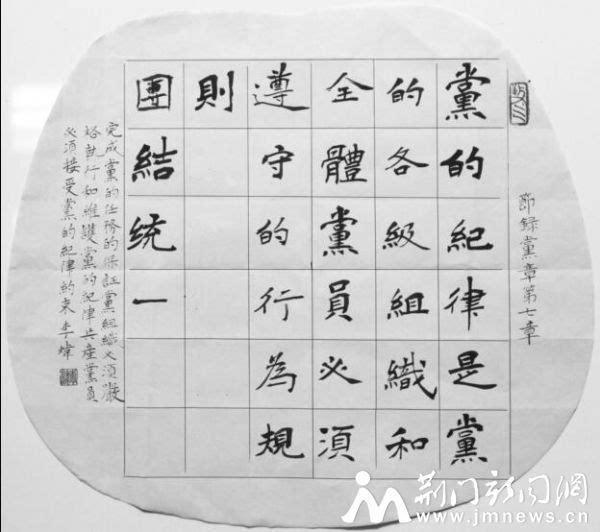 節録黨章第七章
黨的紀律是黨
的各級組織和
全體黨員必須
遵守的行為規
則
團結統一
完成黨的任務的保証黨組織必須嚴
格執行和維護黨的紀律共産黨員
必須接受黨的紀律約束 李煒
荆门新闻网
www.jmnews.cn